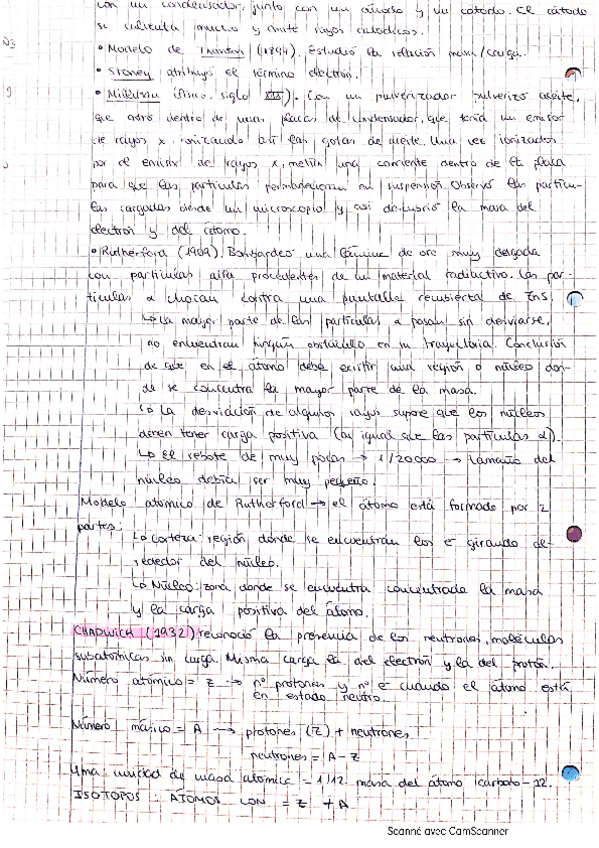 con un condensador, junto con un ánodo y un cátodo. El cátodo
se calienta mucho y emite rayos catódicos.
• Modelo de Thomson (1894). Estudió la relación masa/carga.
• Stoney atribuyó el término electrón.
• Millikan (físico, siglo XIX). Con un pulverizador pulverizó aceite,
que entró dentro de unas placas de condensador, que tenía un emisor
de rayos x, ionizando así las gotas de aceite. Una vez ionizadas
por el emisor de rayos x, metía una corriente dentro de la placa
para que las partículas permanecieran en suspensión. Observó las partícu-
las cargadas desde un microscopio y así descubrió la masa del
electrón y del átomo.
• Rutherford (1909). Bombardeó una lámina de oro muy delgada
con partículas alfa procedentes de un material radiactivo. Las par-
tículas α chocan contra una pantalla recubierta de ZnS.
↳ La mayor parte de las partículas α pasan sin desviarse,
no encuentran ningún obstáculo en su trayectoria. Conclusión
de que en el átomo debe existir una región o núcleo don-
de se concentra la mayor parte de la masa.
↳ La desviación de algunos rayos supone que los núcleos
deben tener carga positiva (al igual que las partículas α).
↳ El rebote de muy pocas → 1/20000 → tamaño del
núcleo debía ser muy pequeño.
Modelo atómico de Rutherford → el átomo está formado por 2
partes:
↳ Corteza: región donde se encuentran los e⁻ girando al-
rededor del núcleo.
↳ Núcleo: zona donde se encuentra concentrada la masa
y la carga positiva del átomo.
CHADWICH (1932) reconoció la presencia de los neutrones, moléculas
subatómicas sin carga. Misma carga la del electrón y la del protón.
Número atómico = Z → nº protones y nº e⁻ cuando el átomo está
en estado neutro.
Número másico = A → protones (Z) + neutrones.
neutrones = A - Z
Uma: unidad de masa atómica = 1/12 masa del átomo carbono-12.
ISÓTOPOS: ÁTOMOS CON = Z ≠ A
Scanné avec CamScanner